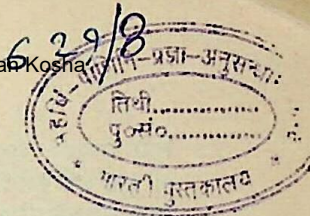 629/8
an Kosha
महर्षि-पाणिनि-प्रज्ञा-अनुसन्धान
तिथी..............
पु०सं०..............
* भारती पुस्तकालय *